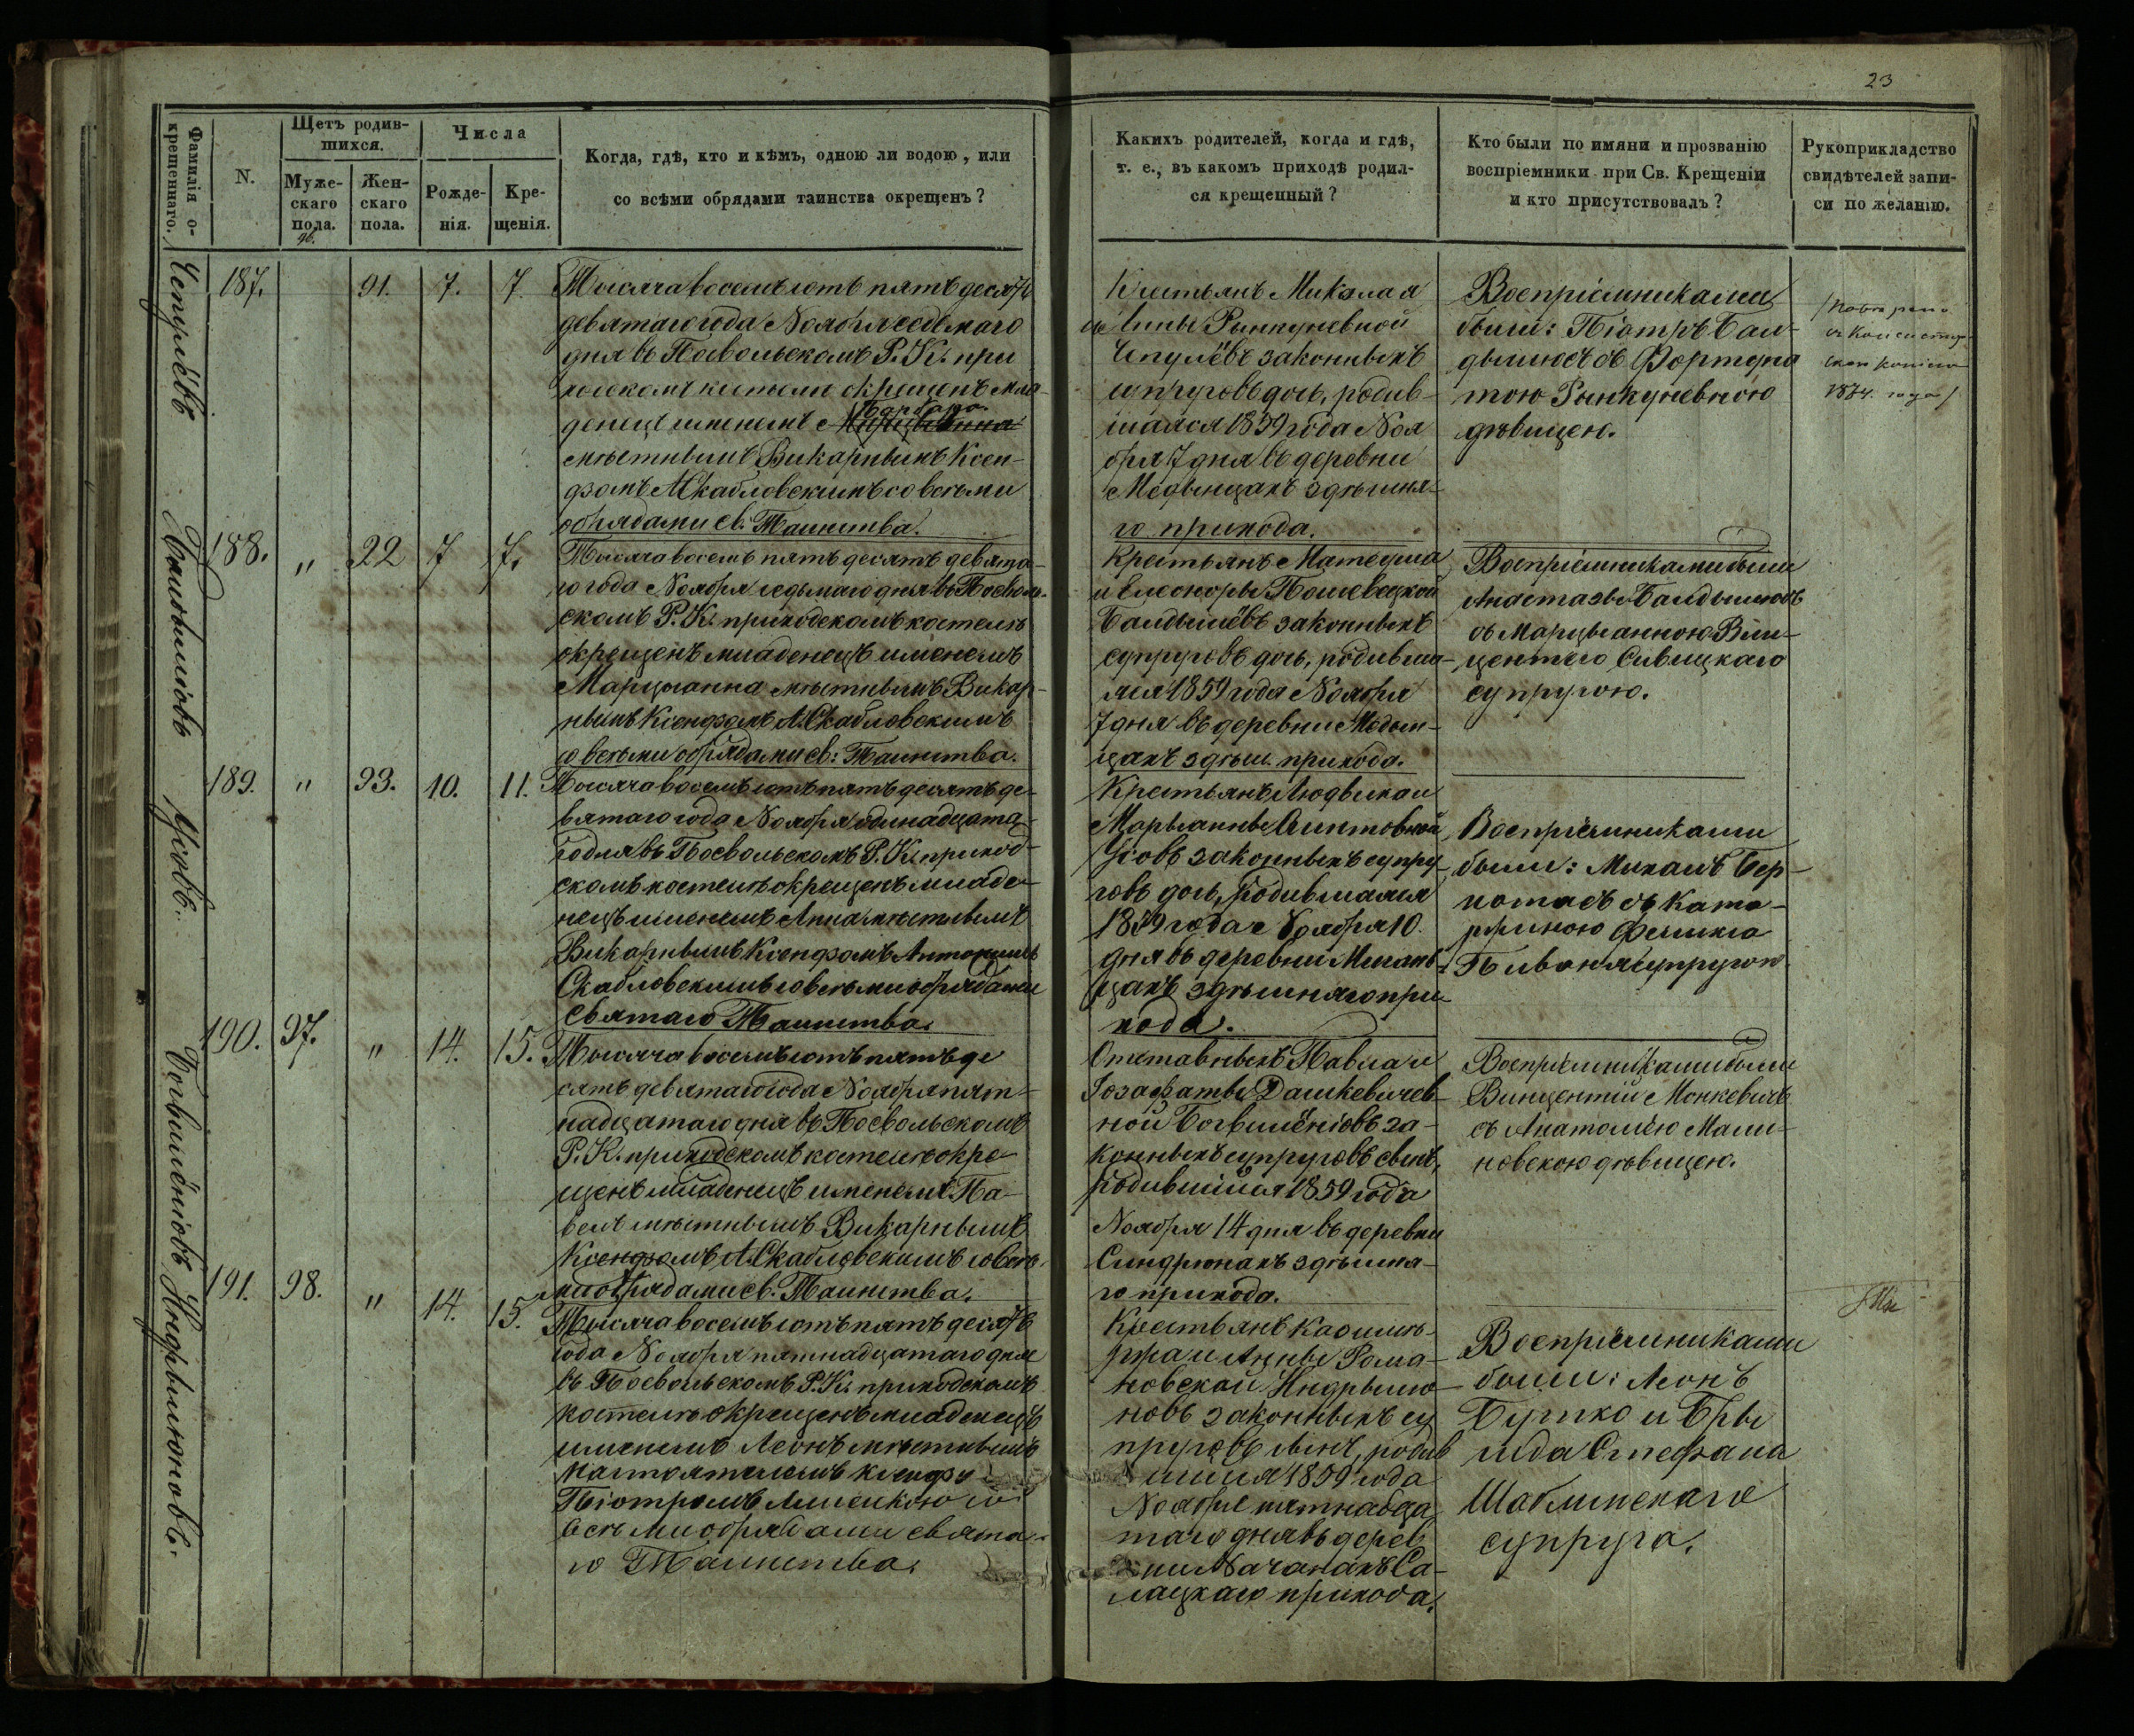 23
Фамилія о-
крещеннаго.
N.
Щетъ родив-
шихся.
Муже-
скаго
пола.
96.
Жен-
скаго
пола.
Числа
Рожде-
нія.
Кре-
щенія.
Когда, гдѣ, кто и кѣмъ, одною ли водою, или
со всѣми обрядами таинства окрещенъ?
Какихъ родителей, когда и гдѣ,
т. е., въ какомъ приходѣ родил-
ся крещенный?
Кто были по имяни и прозванію
воспріемники при Св. Крещеніи
и кто присутствовалъ?
Рукоприкладство
свидѣтелей запи-
си по желанію.
187.
91.
7.
7.
Тысяча восемьсотъ пятьдесятъ
девятаго года Ноября седьмаго
дня въ Посвольскомъ Р. К. при
ходскомъ костелѣ окрещенъ мла-
денецъ именемъ Варвара
мѣстнымъ Викарнымъ Ксен-
дзомъ А. Скабловскимъ со всѣми
обрядами св. Таинства.
Крестьянъ Миколая
и Анны Рынкуневной
законныхъ
супруговъ дочь, родив-
шаяся 1859 года Ноя
бря 7 дня въ деревни
Медынцахъ здѣшня-
го прихода.
Воспріемниками
были: Піотръ Бал-
дышюсъ съ Фортуна
тою Рынкуневною
дѣвицею.
1874. года
188.
"
92
7
7.
Тысяча восемь пятьдесятъ девята-
го года Ноября седьмаго дня въ Посволь-
скомъ Р. К. приходскомъ костелѣ
окрещенъ младенецъ именемъ
Марцыанна мѣстнымъ Викар-
нымъ Ксендзомъ А. Скабловскимъ
со всѣми обрядами св: Таинства.
Крестьянъ Матеуша
и Елеоноры
Балдышёвъ законныхъ
супруговъ дочь, родивша-
яся 1859 года Ноября
7 дня въ деревни Медын-
цахъ здѣш. прихода.
Воспріемниками были
Анастазы Балдышюсъ
съ Марцыанною Вин-
центего Сивицкаго
супругою.
189.
"
93.
10.
11.
Тысяча восемьсотъ пятьдесятъ де-
вятаго года Ноября одинадцата-
го дня въ Посвольскомъ Р. К. приход-
скомъ костелѣ окрещенъ младе-
нецъ именемъ Анна мѣстнымъ
Викарнымъ Ксендзомъ Антонимъ
Скабловскимъ со всѣми обрядами
Святаго Таинства.
Крестьянъ Людвика и
Марыанны
Усовъ законныхъ супру-
говъ дочь, родившаяся
1859 года Ноября 10.
дня въ деревни
цахъ здѣшняго при-
хода.
Воспріемниками
были: Михалъ Бер-
нотасъ съ Ката-
ржиною Феликса
супругою
190.
97.
"
14.
15.
Тысяча восемьсотъ пятьде
сятъ девятаго года Ноября пят-
надцатаго дня въ Посвольскомъ
Р. К. приходскомъ костелѣ окре-
щенъ младенецъ именемъ Па-
велъ мѣстнымъ Викарнымъ
Ксендзомъ А. Скабловскимъ со всѣ-
ми обрядами св. Таинства.
Отставныхъ Павла и
Іозафаты Дашкевичев-
ной Богвилёнісовъ за-
конныхъ супруговъ сынъ,
родившійся 1859 года
Ноября 14 дня въ деревни
Синдрюнахъ здѣшня-
го прихода.
Воспріемниками были
Винцентій Монкевичъ
съ Анатолею Мали-
новскою дѣвицею.
191.
98.
"
14.
15.
Тысяча восемьсотъ пятьдесятъ
года Ноября пятнадцатаго дня
въ Посвольскомъ Р. К. приходскомъ
костелѣ окрещенъ младенецъ
именемъ Леонъ мѣстнымъ
Настоятелемъ Ксендзо
Піотромъ со
всѣми обрядами Свята-
го Таинства.
Крестьянъ Казимѣ-
ржа и Анны Рома-
новской Индрылю-
новъ законныхъ су
пруговъ сынъ, родив
шійся 1859 года
Ноября пятнадца
таго дня въ дерев
ни Начанахъ Са-
лацкаго прихода.
Воспріемниками
были: Леонъ
Бутко и Бры
гида Стефана
Шаблинскаго
супруга.
Балдышюсъ
Усовъ.
Богвилёнісовъ
Индрылюновъ.